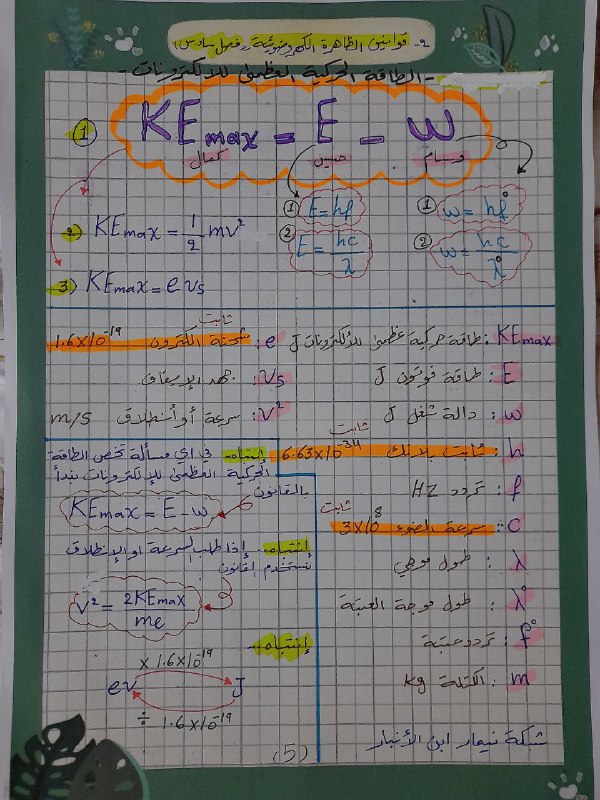 ٢- قوانين الظاهرة الكهروضوئية ((فصل سادس))
- الطاقة الحركية العظمى للإلكترونات -
① KEmax = E - w
كمال حسين وسام
① E = hf
② E = hc/λ
① w = hf°
② w = hc/λ°
2) KEmax = 1/2 mv²
3) KEmax = e vs
KEmax : طاقة حركية عظمى للألكترونات J
E : طاقة فوتون J
w : دالة شغل J
h : ثابت بلانك 6.63x10⁻³⁴ ثابت
f : تردد HZ
c : سرعة الضوء 3x10⁸ ثابت
λ : طول موجي
λ° : طول موجة العتبة
f° : تردد عتبة
m : الكتلة kg
شبكة نيمار ابن الأنبار
e : شحنة الكترون 1.6x10⁻¹⁹ ثابت
Vs : جهد الإيقاف
V² : سرعة أو أنطلاق m/s
إنتباه - في اي مسألة تخص الطاقة
الحركية العظمى للإلكترونات نبدأ
بالقانون
KEmax = E - w
إنتباه - إذا طلب السرعة او الإنطلاق
نستخدم القانون
V² = 2KEmax/me
إنتباه -
x 1.6x10⁻¹⁹
ev J
÷ 1.6x10⁻¹⁹
(5)